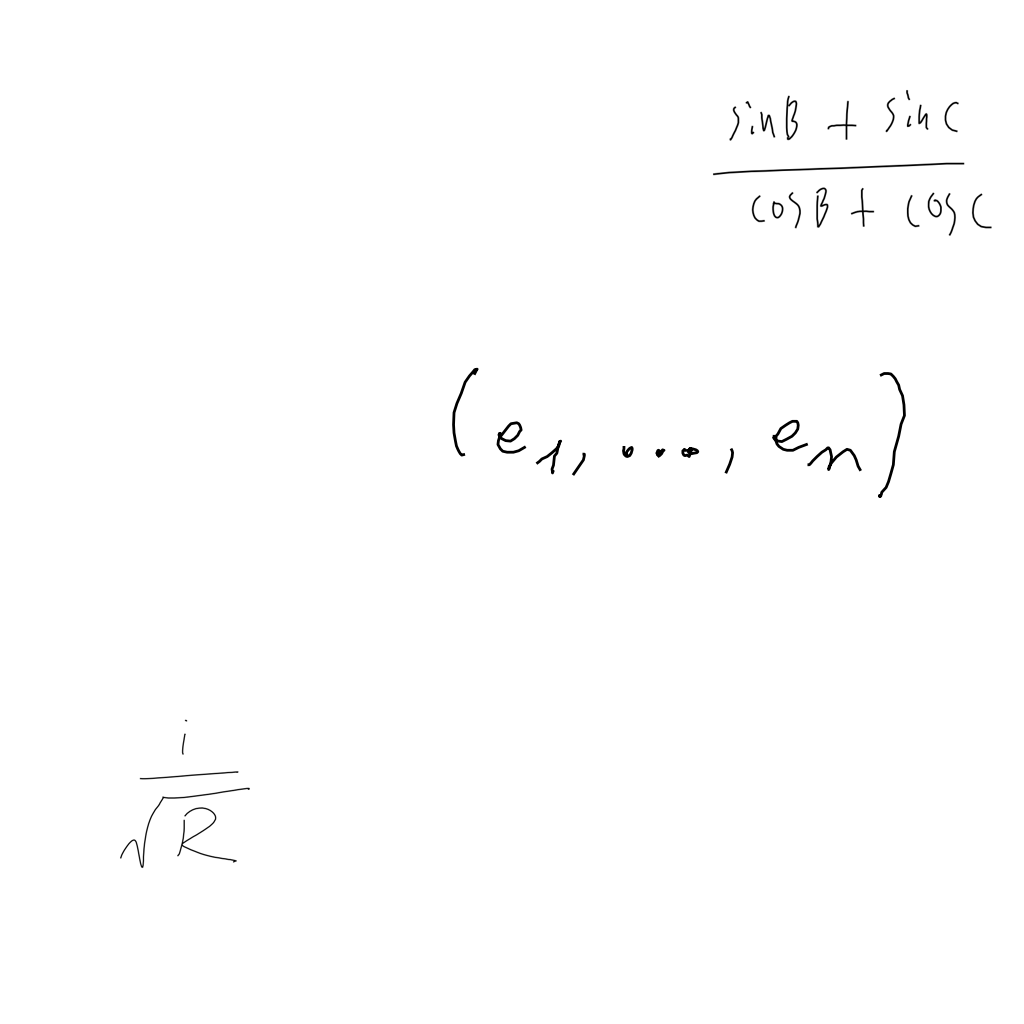 \frac{\sin B + \sin C}{\cos B + \cos C}
(e_1, \ldots, e_n)
\frac{i}{\sqrt{R}}